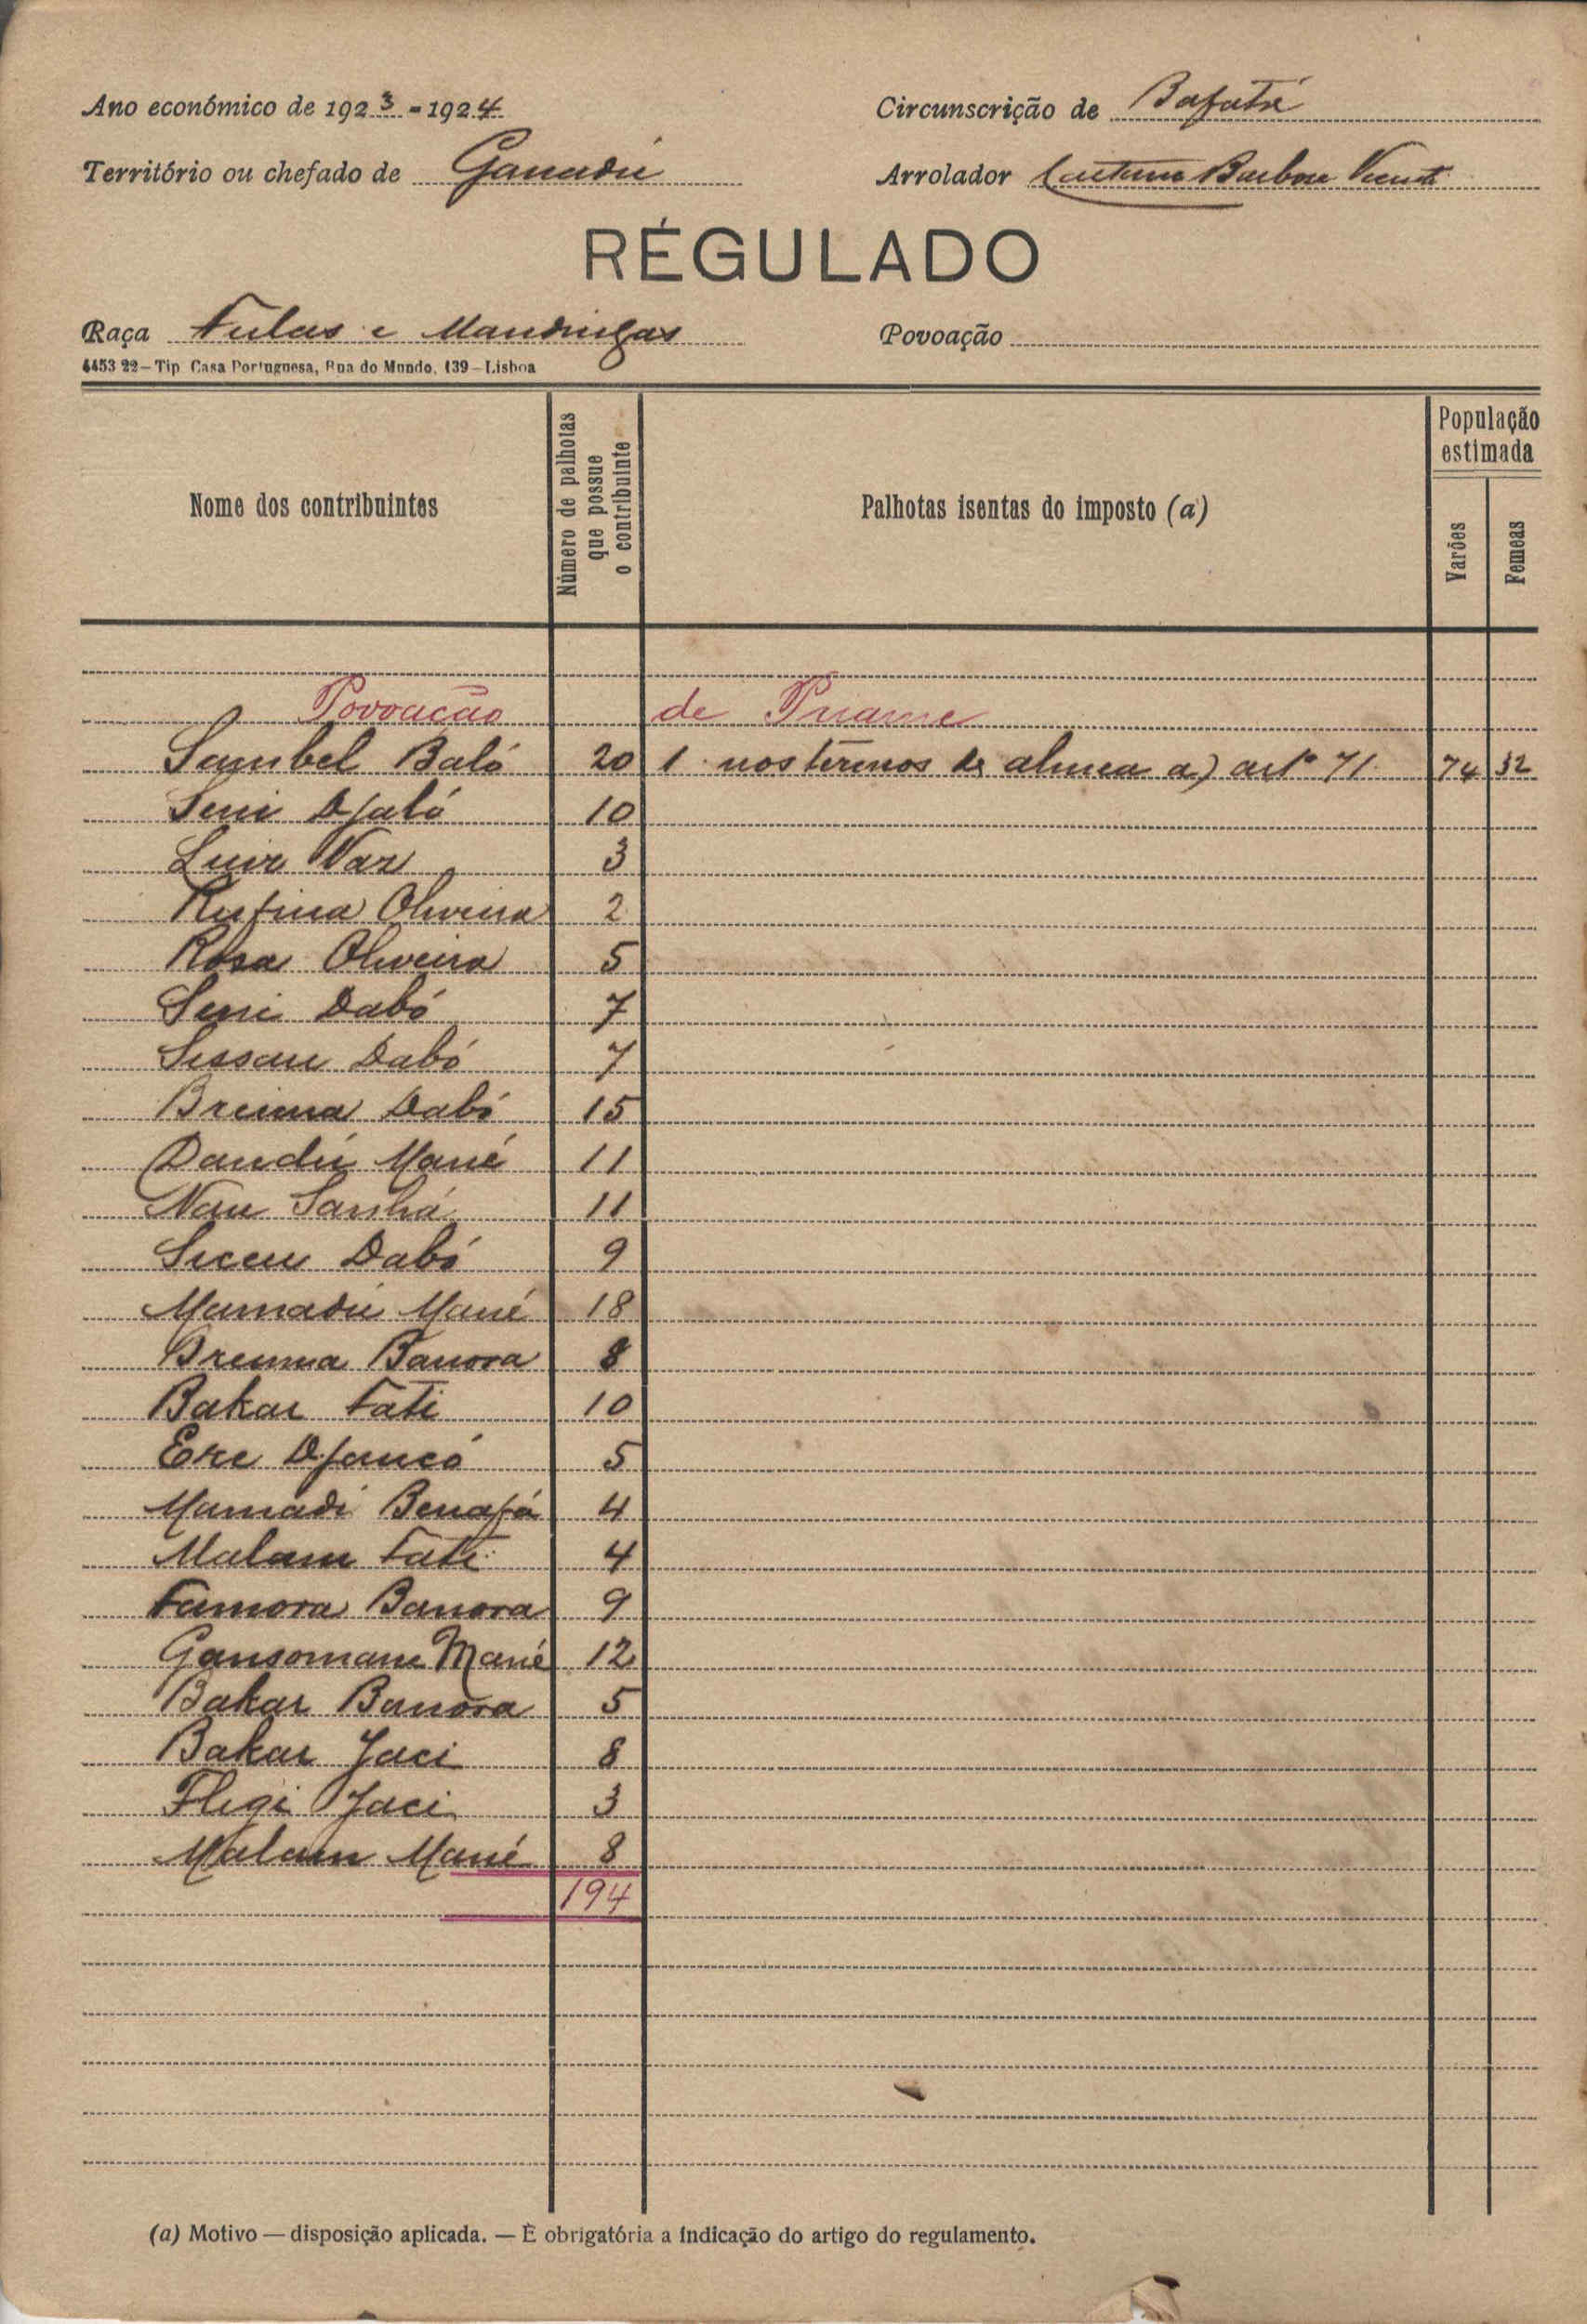 Ano económico de 1923-1924
Circunscrição de Bafatá
Território ou chefado de Ganadú
Arrolador Caetano Barbosa Vicente
RÉGULADO
Raça Fulas e Mandingas
Povoação
4453 22—Tip Casa Portuguesa, Rua do Mundo, 139—Lisboa
Nome dos contribuintes
Número de palhotas que possue o contribuinte
Palhotas isentas do imposto (a)
População estimada
Varões
Femeas
Povoação de
Sambel Baló 20 1 nos termos da alinea a) artº 71 74 32
Seni Djaló 10
Luiz Vaz 3
Rufina Oliveira 2
Rosa Oliveira 5
Seni Dabó 7
Dabó 7
Breima Dabó 15
Dandú Mané 11
Nau Sanhá 11
Dabó 9
Mamadú Mané 18
Breima Banora 8
Bakar Fati 10
5
Mamadi 4
Malam Fati 4
Famora Banora 9
Gansomane Mané 12
Bakar Banora 5
Bakar Jaci 8
Jaci 3
Malam Mané 8
194
(a) Motivo — disposição aplicada. — É obrigatória a indicação do artigo do regulamento.